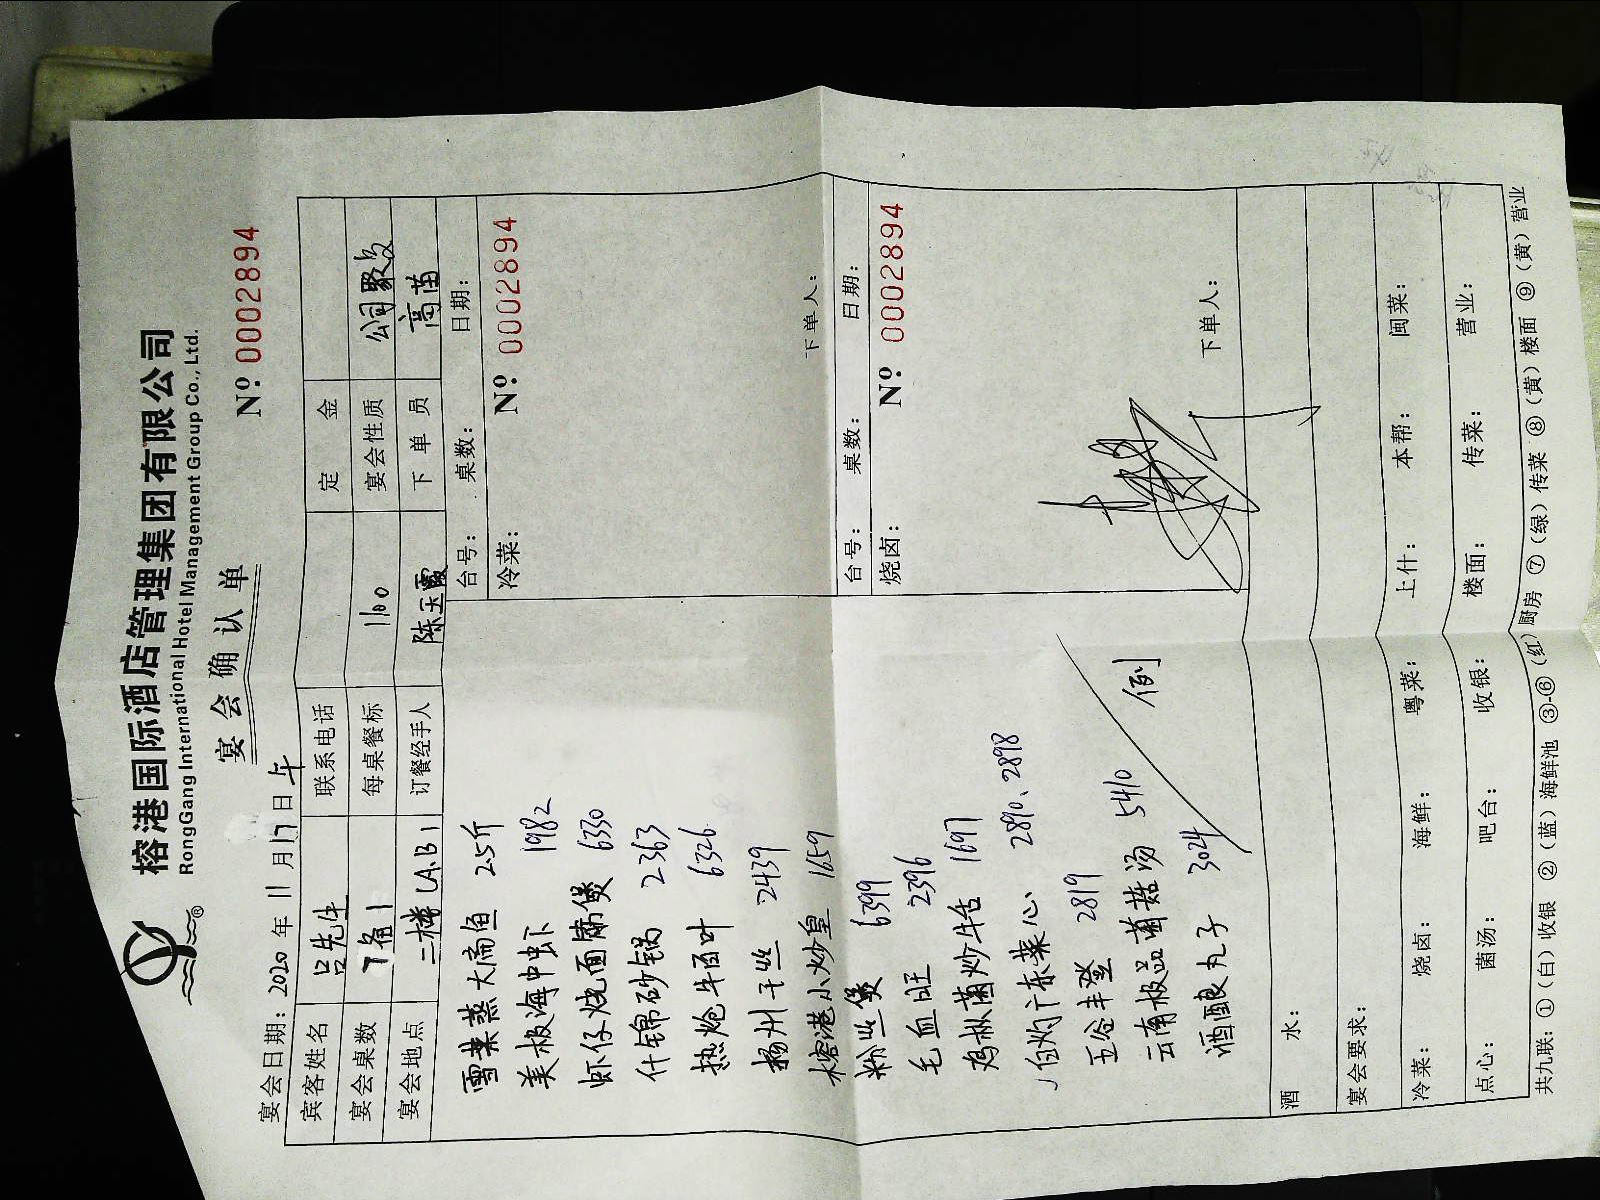 榕港国际酒店管理集团有限公司
RongGang International Hotel Management Group Co., Ltd.
®
宴会确认单
宴会日期：2020年11月17日午 No: 0002894
宾客姓名 吕先生 联系电话 定金
宴会桌数 1 每桌餐标 1100 宴会性质 公司聚会
宴会地点 二楼 LA.B1 订餐经手人 陈玉霞 下单员 高苗
台号： 桌数： 日期：
冷菜： No: 0002894
下单人：
台号： 桌数： 日期：
烧卤： No: 0002894
下单人：
雪菜蒸大扁鱼 2.5斤
美极海中虾 1982
虾仔烧面筋煲 6330
什锦砂锅 2363
热炝牛百叶 6326
扬州干丝 2439
榕港小炒皇 1659
粉丝煲 6399
毛血旺 2396
鸡枞菌炒牛舌 1697
白灼广东菜心 2890、2898
五谷丰登 2819
云南极品菌菇汤 5410 例
酒酿丸子 3024
酒水：
宴会要求：
冷菜： 烧卤： 海鲜： 粤菜： 上什： 本帮： 闽菜：
点心： 菌汤： 吧台： 收银： 楼面： 传菜： 营业：
共九联：①（白）收银 ②（蓝）海鲜池 ③-⑥（红）厨房 ⑦（绿）传菜 ⑧（黄）楼面 ⑨（黄）营业